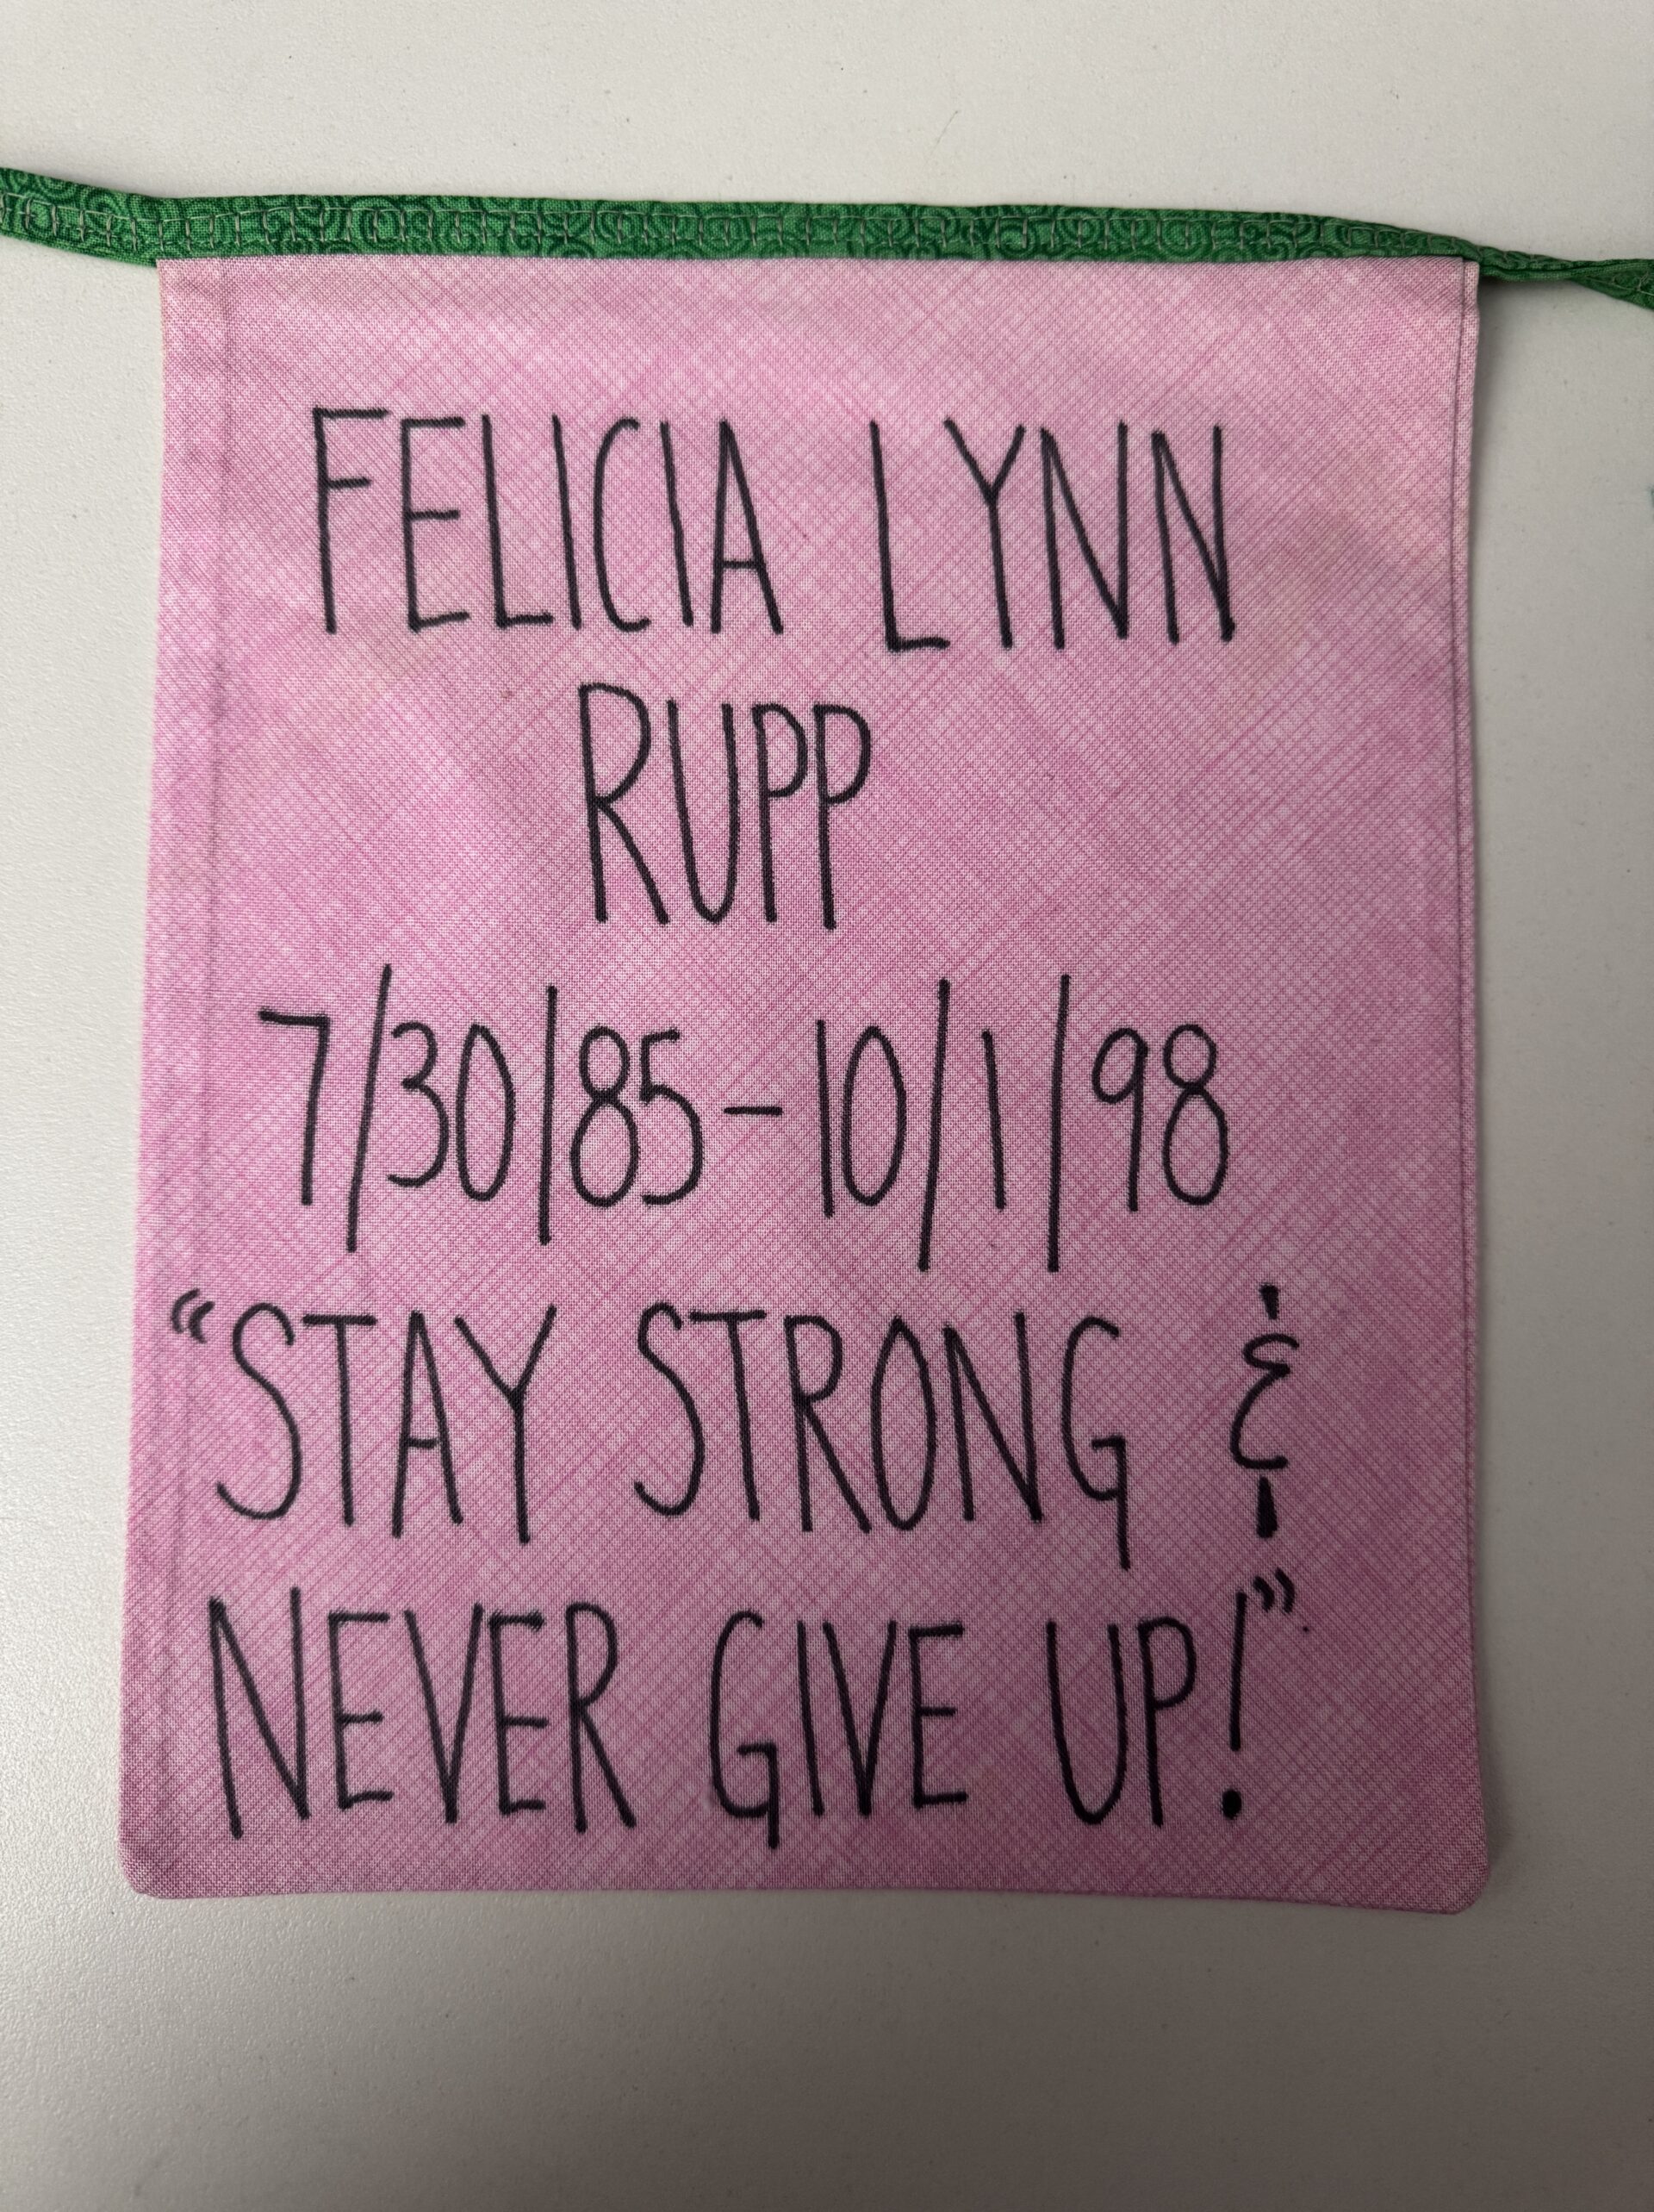 FELICIA LYNN
RUPP
7/30/85-10/1/98
“STAY STRONG &
NEVER GIVE UP!”